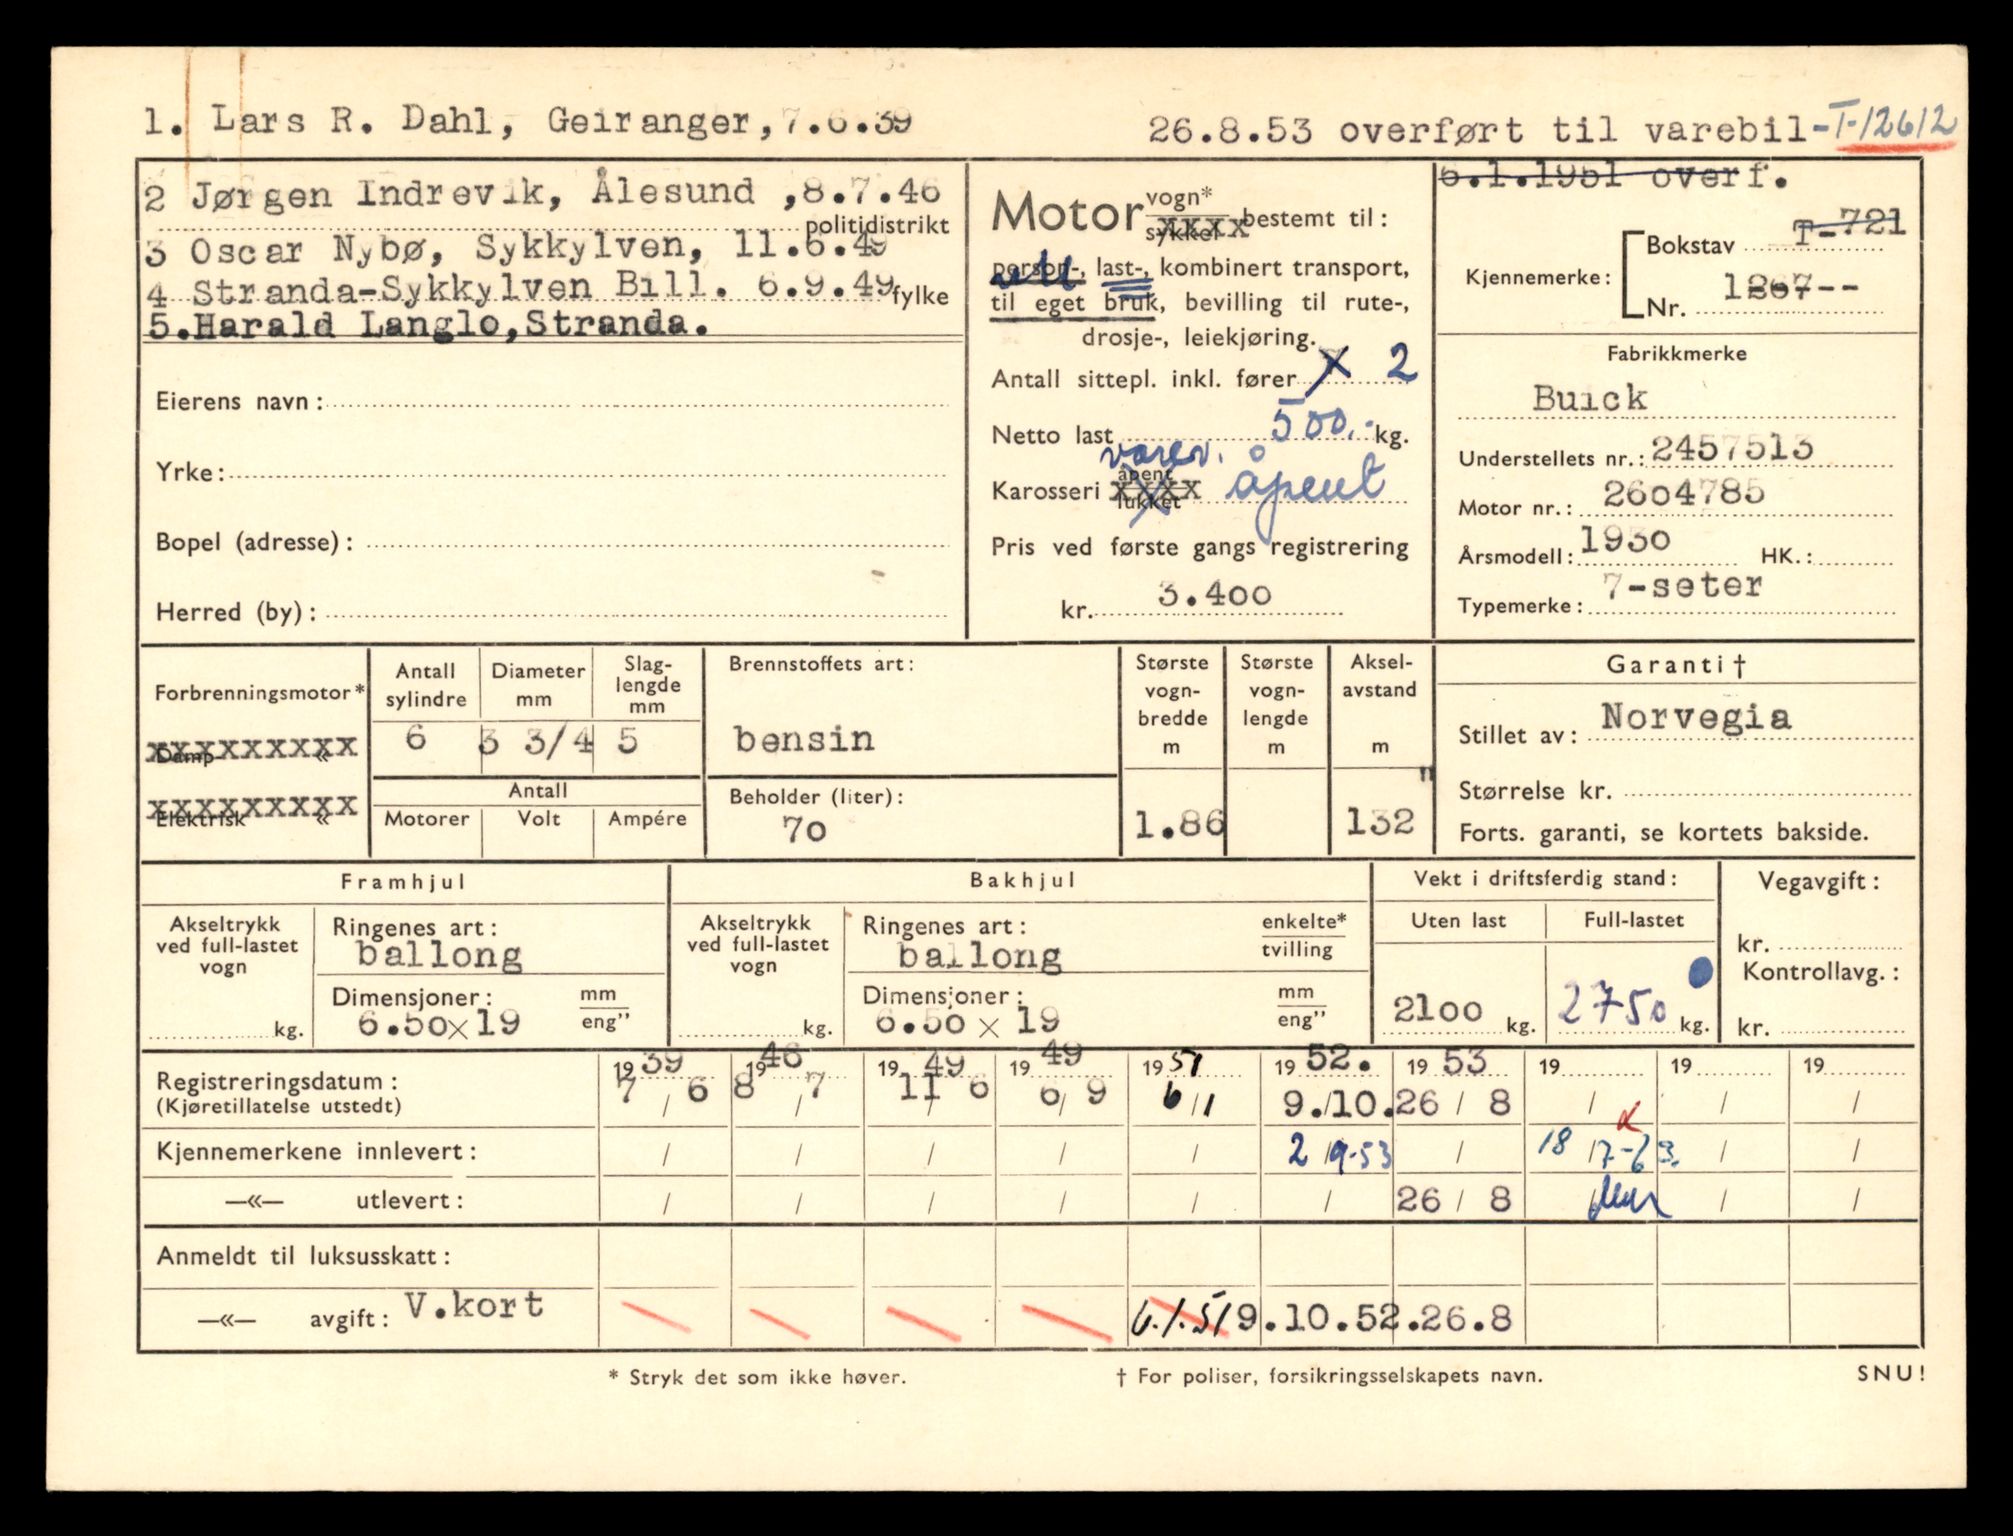 1. Lars R. Dahl, Geiranger, 7.6.39
26.8.53 overført til varebil-T-12612
2 Jørgen Indrevik, Ålesund ,8.7.46
politidistrikt
3 Oscar Nybø, Sykkylven, 11.6.49
4 Stranda-Sykkylven Bill. 6.9.49 fylke
5.Harald Langlo,Stranda.
Eierens navn :
Yrke :
Bopel (adresse) :
Herred (by) :
Motor vogn*
sykkel xxxx bestemt til :
person-, last-, kombinert transport,
til eget bruk, bevilling til rute-,
drosje-, leiekjøring.
Antall sittepl. inkl. fører 2
Netto last 500.- kg.
varev.
Karosseri åpent
lukket xxxx åpent
Pris ved første gangs registrering
kr. 3.400
6.1.1951 overf.
T-721
Kjennemerke : Bokstav
Nr. 1267--
Fabrikkmerke
Buick
Understellets nr. : 2457513
Motor nr. : 2604785
Årsmodell : 1930 HK. :
Typemerke : 7-seter
Forbrenningsmotor*
Damp « xxxxxxxxx
Elektrisk « xxxxxxxxx
Antall sylindre Diameter mm Slag-lengde mm
6 3 3/4 5
Antall
Motorer Volt Ampére
Brennstoffets art :
bensin
Beholder (liter) :
70
Største vogn-bredde m
1.86
Største vogn-lengde m
Aksel-avstand m
132"
Garanti †
Stillet av : Norvegia
Størrelse kr.
Forts. garanti, se kortets bakside.
Framhjul
Akseltrykk ved full-lastet vogn
kg.
Ringenes art :
ballong
Dimensjoner : mm
6.50 x 19 eng"
Bakhjul
Akseltrykk ved full-lastet vogn
kg.
Ringenes art : enkelte*
ballong tvilling
Dimensjoner : mm
6.50 x 19 eng"
Vekt i driftsferdig stand :
Uten last Full-lastet
2100 kg. 2750 kg.
Vegavgift :
kr.
Kontrollavg. :
kr.
1939 1946 1949 1949 1951 1952. 1953 19 19 19
Registreringsdatum : 7 / 6 8 / 7 11 / 6 6 / 9 6 / 1 9./10. 26 / 8 / / /
(Kjøretillatelse utstedt)
Kjennemerkene innlevert : / / / / / 2 / 9-53 / 18 / 7-63. / /
—«— utlevert : / / / / / / 26 / 8 / / /
Anmeldt til luksusskatt :
—«— avgift : V.kort 6.1.51 9.10.52. 26.8
* Stryk det som ikke høver.
† For poliser, forsikringsselskapets navn.
SNU!